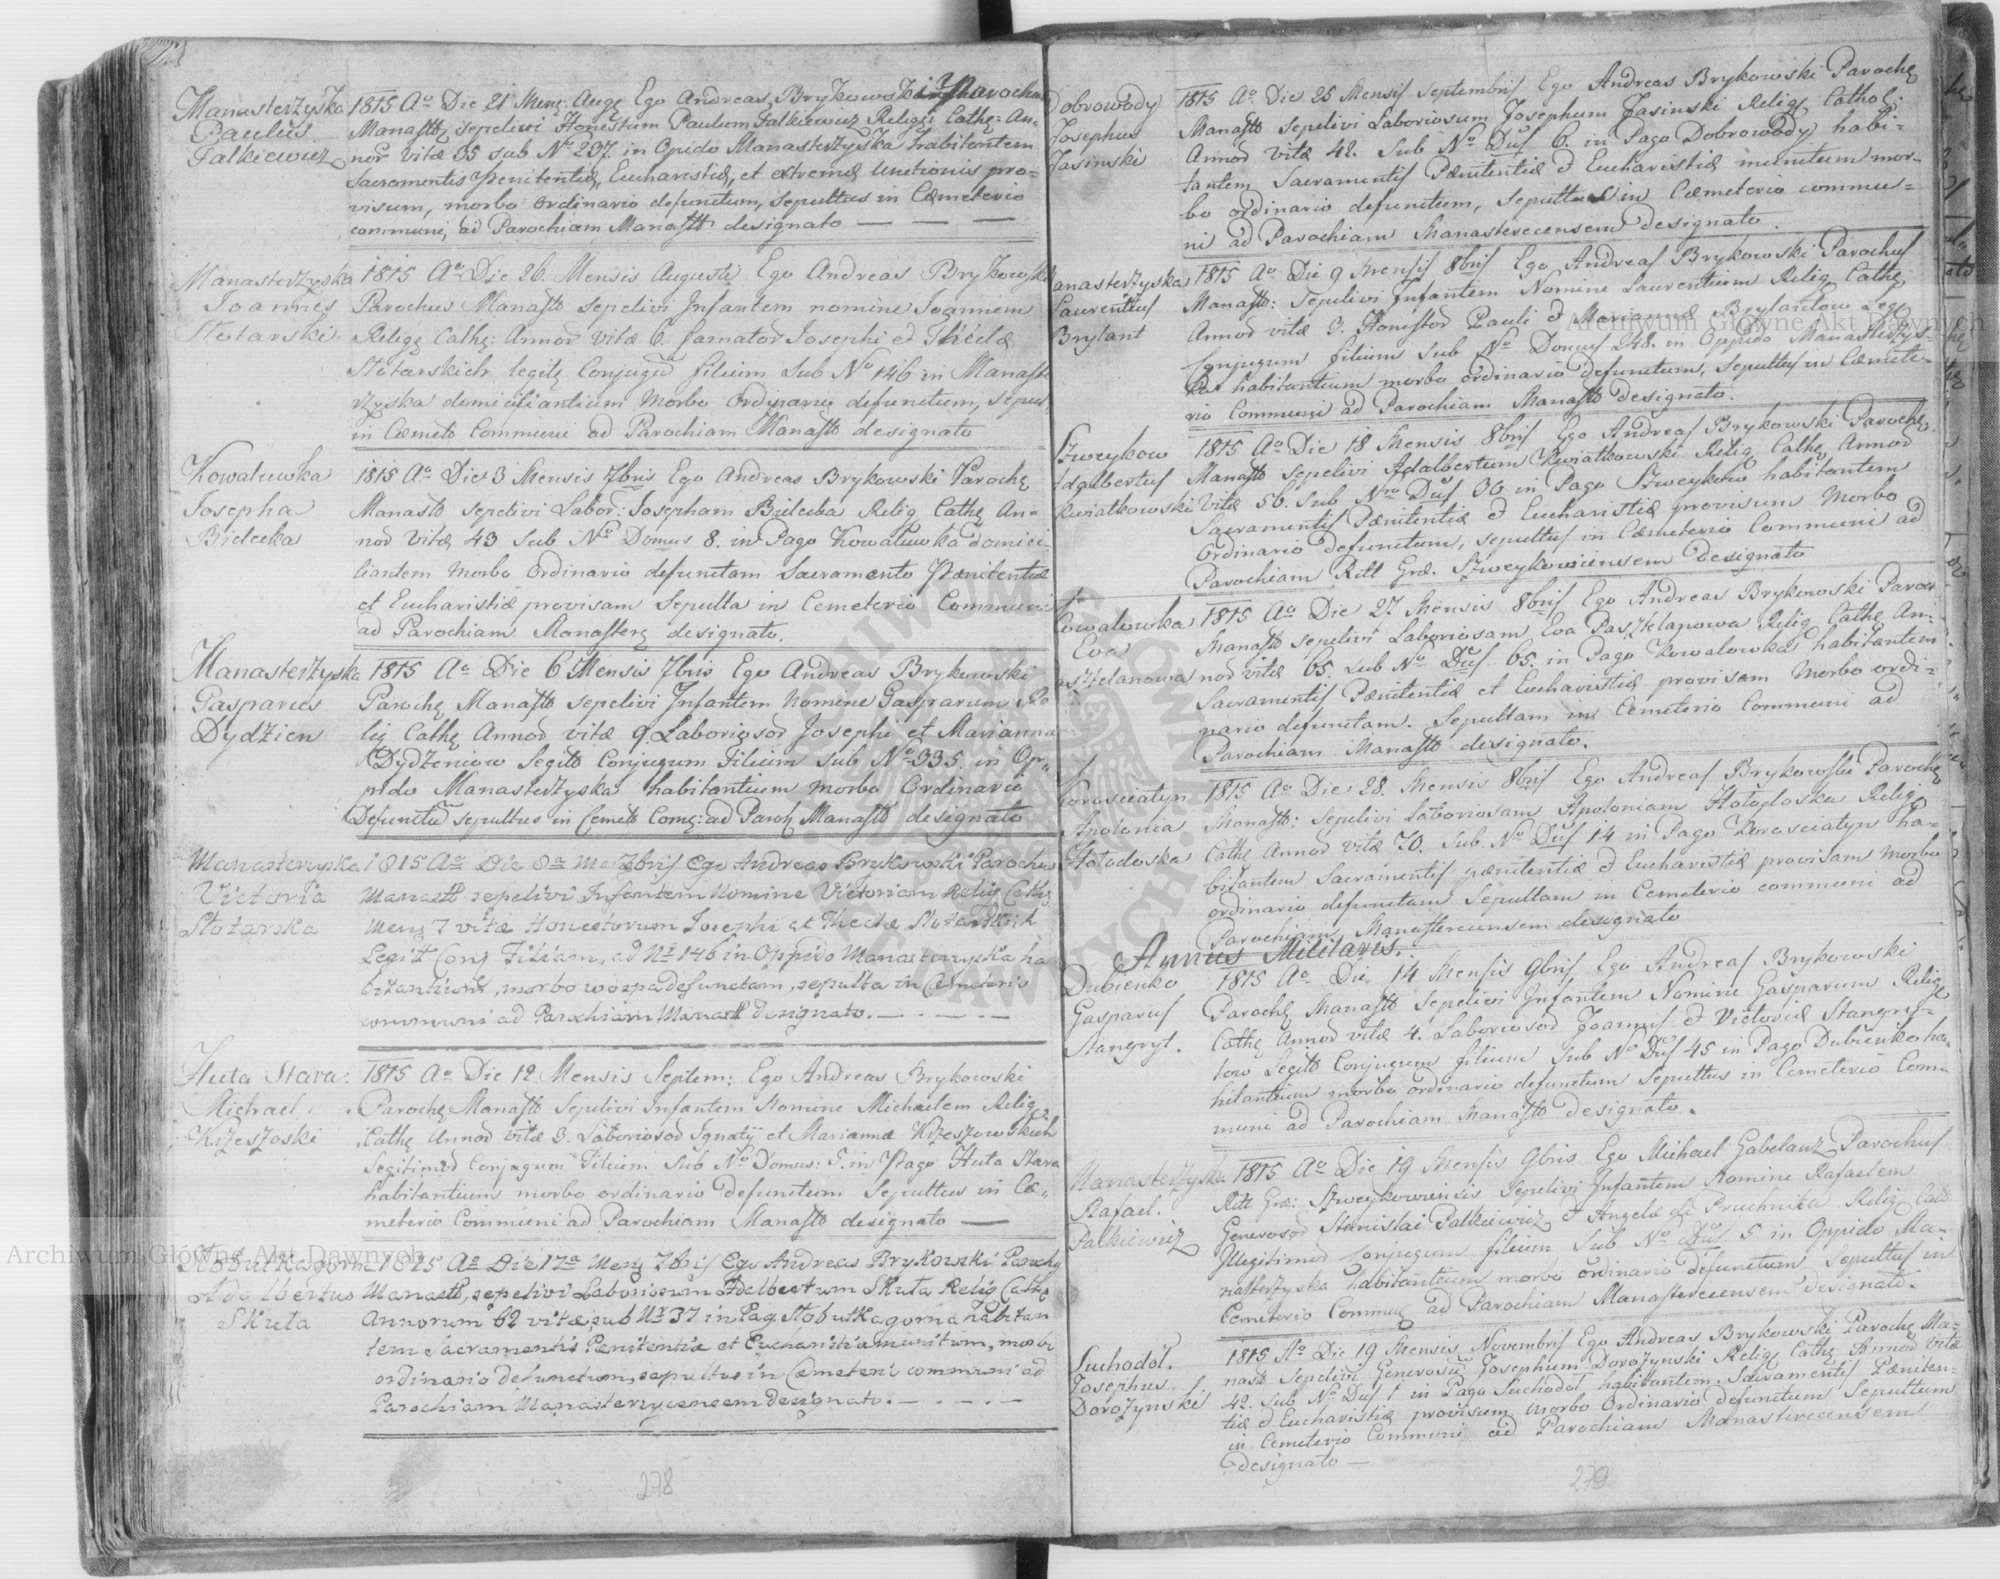 Manasterzyska
Paulus
Falkiewicz
1815 Ao Die 21 Mens: Aug Ego Andreas Brykowski Parochus
Manastt sepelivi Honestum Paulum Falkiewicz Relig: Cath: An-
nor vitæ 35 sub No 237. in Opido Manasterzyska habitantem
Sacramentis Penitentiæ, Eucharistiæ, et extremæ unctionis pro-
visum, morbo ordinario defunctum, sepultus in Cæmeterio
communi, ad Parochiam Manastt designato
Manasterzyska
Joannes
Stotarski
1815 Ao Die 26. Mensis Augusti Ego Andreas Brykowski
Parochus Manastt sepelivi Infantem nomine Joannem
Relig Cath: Annor vitæ 6. famator Josephi et Theclæ
Stotarskich legit Conjugu filium sub No 146 in Manast
rzyska domiciliantium Morbo Ordynario defunctum, sepul,
in Cæmet Communi ad Parochiam Manastt designato
Kowaluwka
Josepha
Bielecka
1815 Ao Die 3 Mensis 7bris Ego Andreas Brykowski Paroch
Manastt sepelivi Labor: Josepham Bielecka Relig Cath An-
nor vitæ 43 sub No Domus 8. in Pago Kowaluwka domici-
liantem Morbo Ordinario defunctam Sacramento Pænitentiæ
et Eucharistiæ provisam Sepulta in Cemeterio Communi
ad Parochiam Monaster designato.
Manasterzyska
Gasparus
Dydzien
1815 Ao Die 6 Mensis 7bris Ego Andreas Brykowski
Paroch Manastt sepelivi Infantem Nomine Gasparum Re
lig Cath Annor vitæ 9 Laborioso Josephi et Marianna
Dydzeniow Legit Conjugum Filium sub No 335. in Op-
pido Manasterzyska habitantium Morbo Ordinario
Defunctu sepultus in Cemet Com: ad Paroch Manastt designato
Manasterzyska
Victoria
Stotarska
1815 Ao Die 8a Mens 7bris Ego Andreas Brykowski Parochus
Manastt sepelivi Infantem Nomine Victoriam Relig Cath
Mens 7 vitæ Honestorum Josephi et Theclæ Stotarskich
Legit Conj Filiam, ad Nr 146 in Oppido Manasterzyska ha
bitantium, morbo wospa defunctam, sepulta in Cæmeterio
communi ad Parochiam Manastt designato.
Huta Stara.
Michael
Krzeszoski
1815 Ao Die 12 Mensis Septem: Ego Andreas Brykowski
Paroch Manastt Sepelivi Infantem Nomine Michaelem Relig
Cath Annor vitæ 3. Laborioso Ignatij et Mariannæ Krzeszowskich
Legitimor Conjugum Filium Sub No Domus: 5. in Pago Huta Stara
habitantium morbo ordinario defunctum Sepultus in Cæ-
meterio Communi ad Parochiam Manastt designato
Stobutkagorna
Adalbertus
Skuta
1815 Ao Die 17a Mens 7bris Ego Andreas Brykowski Paroch
Manastt, sepelivi Laboriosum Adalbertum Skuta Relig Cath
Annorum 62 vitæ, sub Nr 37 in Pag Stobutkagorna habitan
tem Sacramentis Penitentiæ et Eucharistia munitum, morbo
ordinario defunctum, sepultus in Cæmeteri communi ad
Parochiam Manasterzycensem Designato.
278
Dobrowody
Josephus
Jasinski
1815 Ao Die 25 Mensis Septembris Ego Andreas Brykowski Paroch
Manastt sepelivi Laboriosum Josephum Jasinski Relig Cathol:
Annor vitæ 42. Sub No Dus 6. in Pago Dobrowody habi-
tantem Sacramentis Pænitentiæ et Eucharistiæ munitum mor-
bo ordinario defunctum, sepultus in Cæmeterio commu-
ni ad Parochiam Manasterecensem designato.
anasterzyska
Laurentius
Brylant
1815 Ao Die 9 Mensis 8bris Ego Andreas Brykowski Parochus
Manastt: Sepelivi Infantem Nomine Laurentium Relig Cath
Annor vitæ 3. Honestor Pauli et Mariannæ Brylantow Leg
Conjugum filium Sub No Domus 248. in Oppido Manasterzys-
ka habitantium morbo ordinario defunctum, sepultus in Cæmete-
rio Communi ad Parochiam Manastt designato.
Szweykow
Adalbertus
Kwiatkowski
1815 Ao Die 18 Mensis 8bris Ego Andreas Brykowski Paroch
Manastt sepelivi Adalbertum Kwiatkowski Relig Cath Annor
Vitæ 56. sub Nro Dus 30 in Pago Szweykow habitantem
Sacramentis Pænitentiæ et Eucharistiæ provisum Morbo
Ordinario defunctum, sepultus in Cæmeterio Communi ad
Parochiam Ritt Græ. Szweykowiensem designato
Kowalowka
Eva
Paszkelanowa
1815 Ao Die 27 Mensis 8bris Ego Andreas Brykowski Paroch
Manastt sepelivi Laboriosam Eva Paszkelapowa Relig Cath An-
nor vitæ 65. sub No Dus 65. in Pago Kowalowka habitantem
Sacramentis Pænitentiæ et Eucharistiæ provisam Morbo ordi-
nario defunctam. Sepultam in Cemeterio Communi ad
Parochiam Manastt designato.
Korosciatyn
Apolonia
Hotodoska
1815 Ao Die 28. Mensis 8bris Ego Andreas Brykowski Paroch
Manastt: Sepelivi Laboriosam Apoloniam Hotodoska Relig
Cath Annor vitæ 70. Sub No Dus 14 in Pago Korosciatyn ha-
bitantem Sacramentis pænitentiæ et Eucharistiæ provisam Morbo
ordinario defunctam Sepultam in Cemeterio communi ad
Parochiam Manasterecensem designato
Annus Militaris.
Dubienko
Gasparus
Stangryt.
1815 Ao Die 14 Mensis 9bris Ego Andreas Brykowski
Paroch Manastt Sepelivi Infantem Nomine Gasparum Relig
Cath Annor vitæ 4. Laborioso Joannis et Victoriæ Stangry-
tow Legit Conjugum filium Sub No Dus 45 in Pago Dubienko ha-
bitantium morbo ordinario defunctum Sepultus in Cemeterio Com-
muni ad Parochiam Manastt designato.
Manasterzyska
Rafael.
Palkiewicz
1815 Ao Die 19 Mensis 9bris Ego Michael Gabelauz Parochus
Ritt Græ: Szweykowiensis Sepelivi Infantem Nomine Rafaelem
Generosor Stanislai Palkiewicz et Angelæ de Pruchnika Relig Cath
Illegitimor conjugum filium Sub No Dus 5 in Oppido Ma-
nasterzyska habitantium morbo ordinario defunctum Sepultus in
Cemeterio Commu ad Parochiam Manasterecensem designato.
Suchodol.
Josephus
Dorozynski
1815 Ao Die 19 Mensis Novembris Ego Andreas Brykowski Paroch Ma-
nastt Sepelivi Generosu Josephum Dorozynski Relig Cath Annor vitæ
42. Sub No Dus 1 in Pago Suchodol habitantem Sacramentis Pæniten-
tiæ et Eucharistiæ provisum Morbo Ordinario defunctum Sepultum
in Cemeterio Communi ad Parochiam Manasterecensem
designato
279
Archiwum Główne Akt Dawnych
Archiwum Główne Akt Dawnych